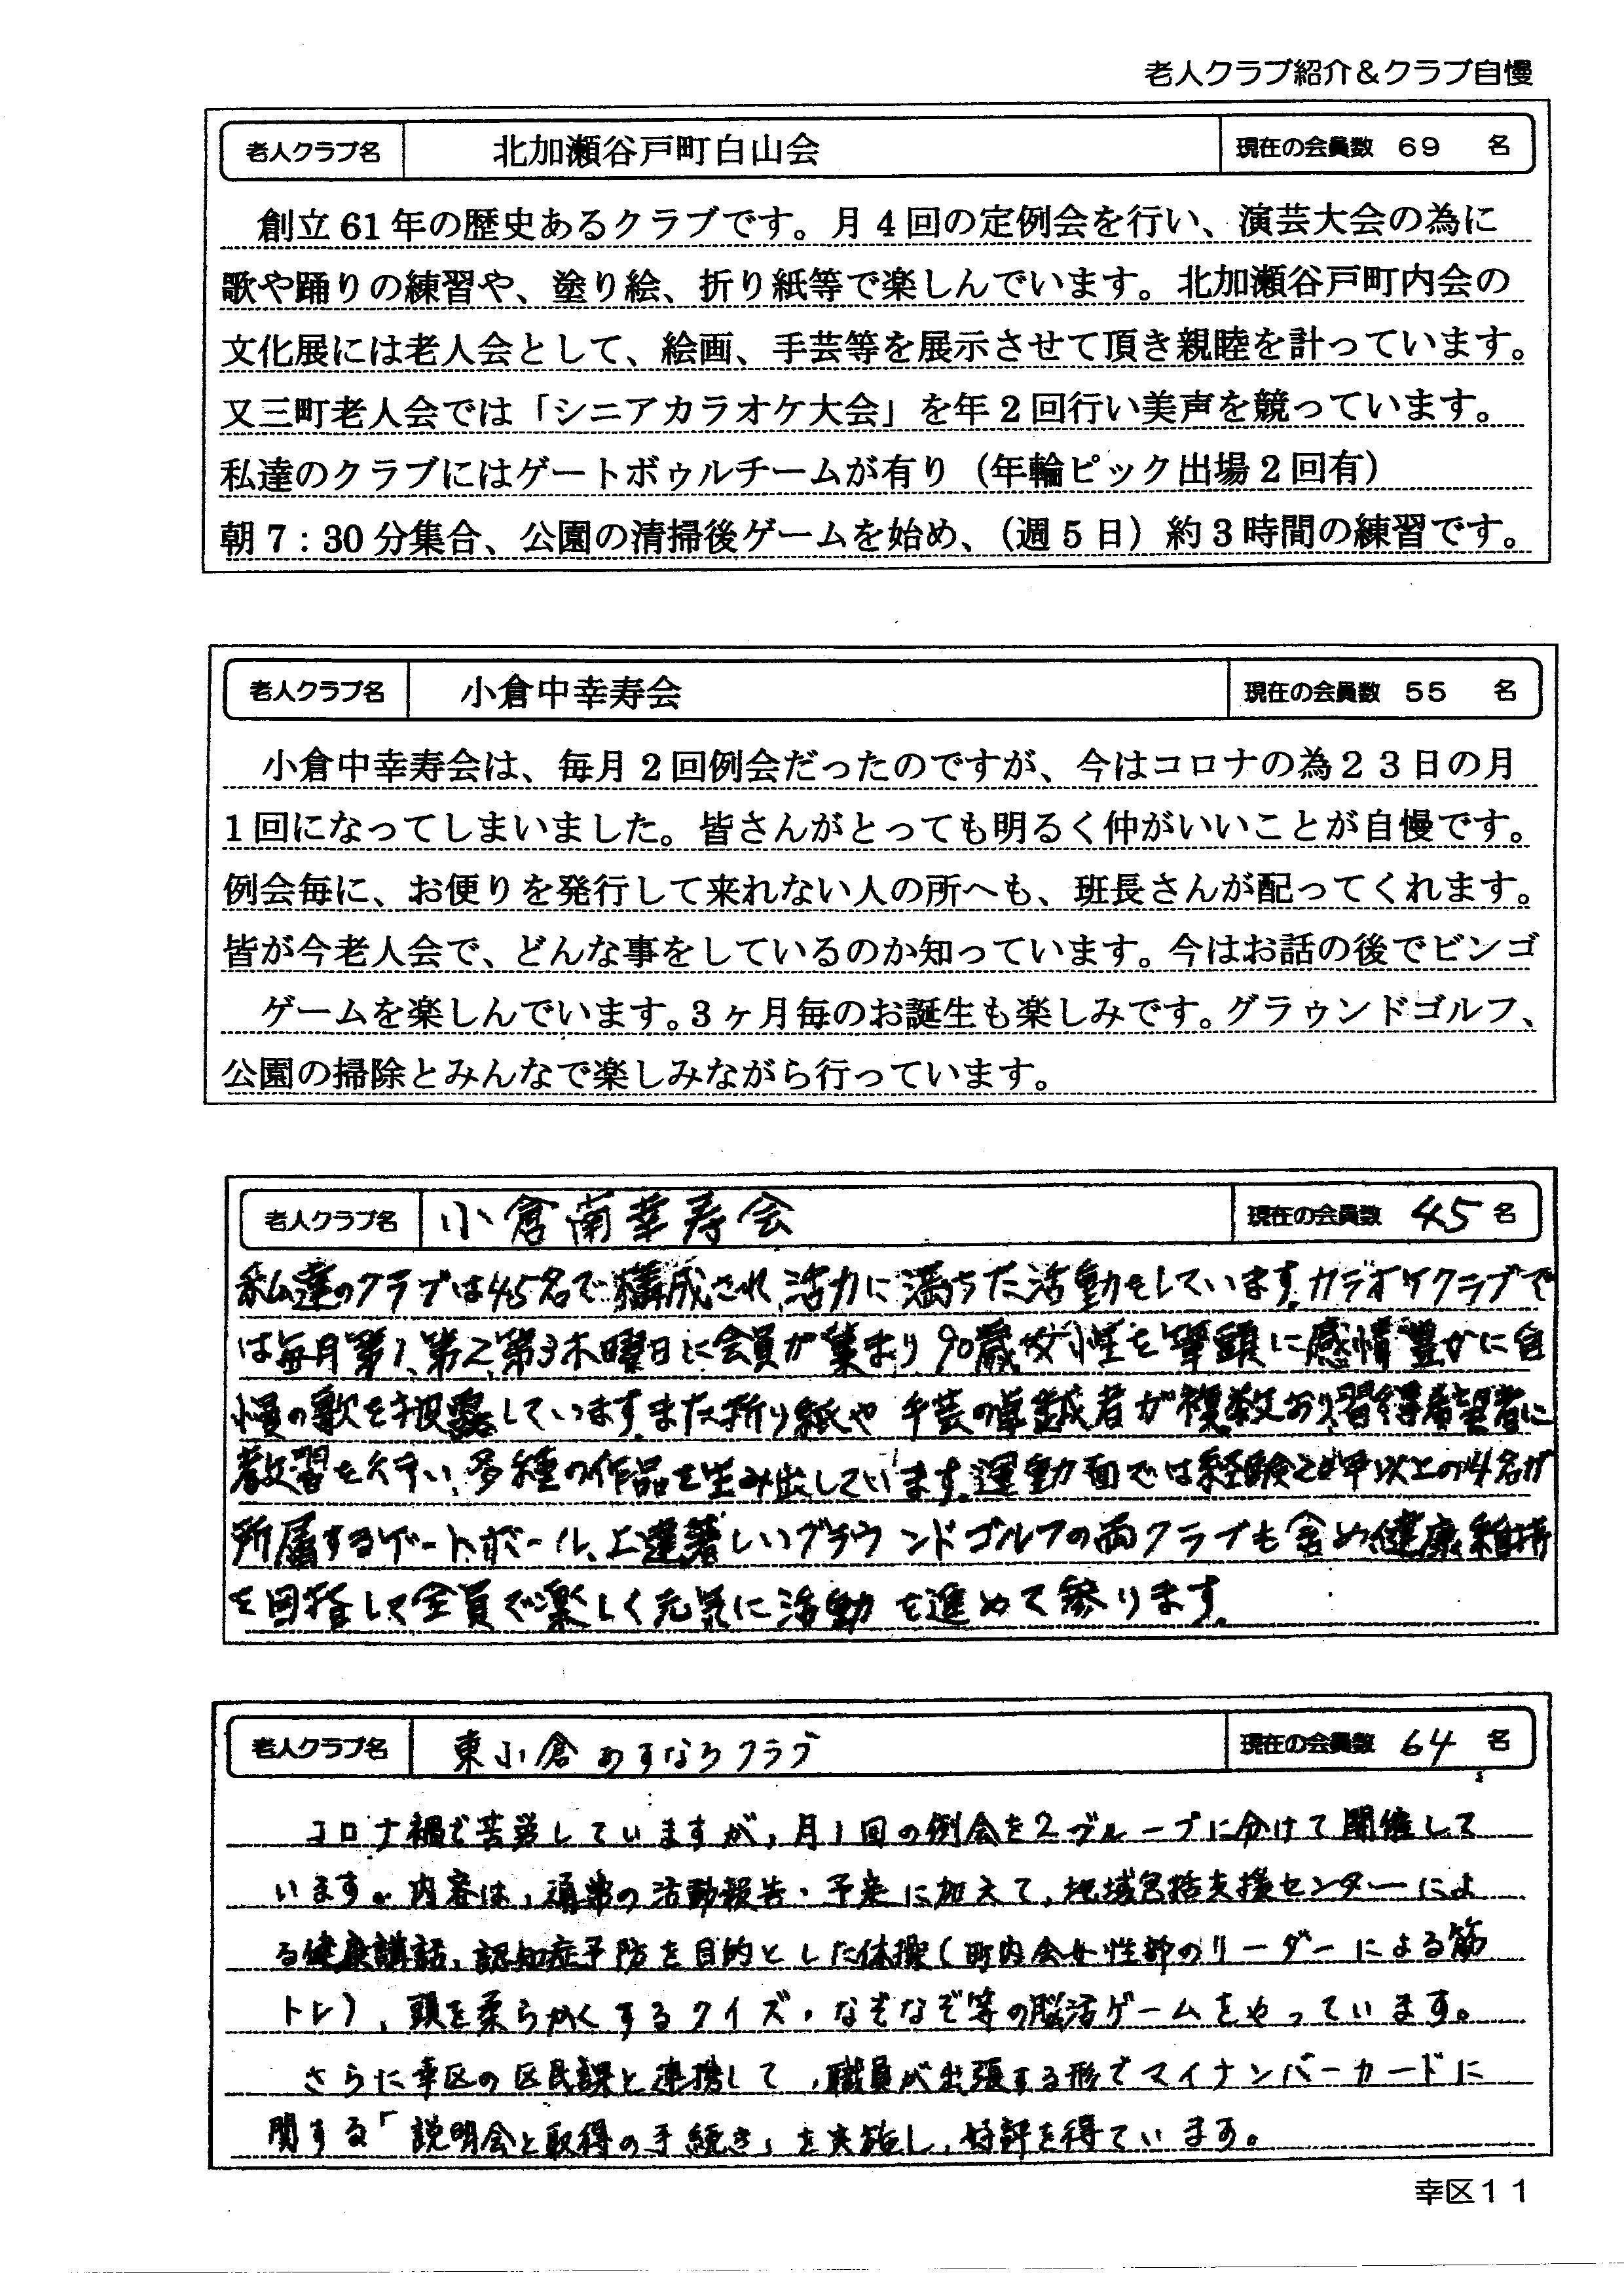 老人クラブ紹介&クラブ自慢
老人クラブ名 北加瀬谷戸町白山会 現在の会員数 69 名
創立61年の歴史あるクラブです。月4回の定例会を行い、演芸大会の為に
歌や踊りの練習や、塗り絵、折り紙等で楽しんでいます。北加瀬谷戸町内会の
文化展には老人会として、絵画、手芸等を展示させて頂き親睦を計っています。
又三町老人会では「シニアカラオケ大会」を年2回行い美声を競っています。
私達のクラブにはゲートボゥルチームが有り(年輪ピック出場2回有)
朝7:30分集合、公園の清掃後ゲームを始め、(週5日)約3時間の練習です。
老人クラブ名 小倉中幸寿会 現在の会員数 55 名
小倉中幸寿会は、毎月2回例会だったのですが、今はコロナの為23日の月
1回になってしまいました。皆さんがとっても明るく仲がいいことが自慢です。
例会毎に、お便りを発行して来れない人の所へも、班長さんが配ってくれます。
皆が今老人会で、どんな事をしているのか知っています。今はお話の後でビンゴ
ゲームを楽しんでいます。3ヶ月毎のお誕生も楽しみです。グラゥンドゴルフ、
公園の掃除とみんなで楽しみながら行っています。
老人クラブ名 小倉南幸寿会 現在の会員数 45 名
私達のクラブは45名で構成され、活力に満ちた活動をしています。カラオケクラブで
は毎月第1、第2、第3木曜日に会員が集まり、90歳女性を筆頭に感情豊かに自
慢の歌を披露しています。また折り紙や手芸の卓越者が複数おり、習得希望者に
教習を行い、多種の作品を生み出しています。運動面では経験20年以上の4名が
所属するゲートボール、上達著しいグラウンドゴルフの両クラブも含め、健康維持
を目指して全員で楽しく元気に活動を進めて参ります。
老人クラブ名 東小倉あすなろクラブ 現在の会員数 64 名
コロナ禍で苦労していますが、月1回の例会を2グループに分けて開催して
います。内容は、通常の活動報告・予定に加えて、地域包括支援センターによ
る健康講話、認知症予防を目的とした体操(町内会女性部のリーダーによる筋
トレ)、頭を柔らかくするクイズ・なぞなぞ等の脳活ゲームをやっています。
さらに幸区の区民課と連携して、職員が出張する形でマイナンバーカードに
関する「説明会と取得の手続き」を実施し、好評を得ています。
幸区11